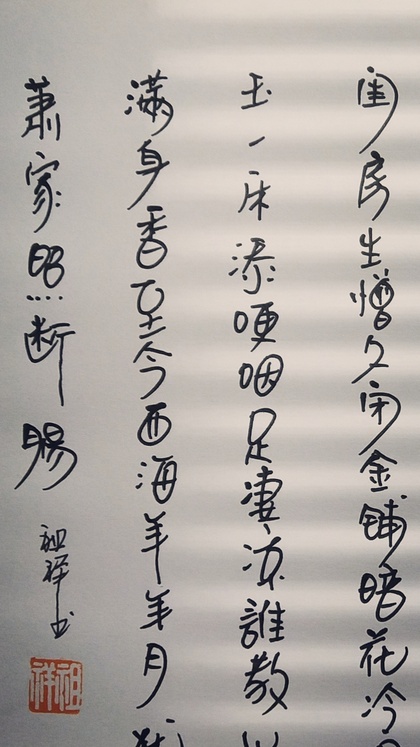 闺房生憎久闭金鋪暗花冷
玉一床添哽咽足凄凉誰教
滿身香至今西海年年月
蕭家照断腸
祖祥书
祖祥